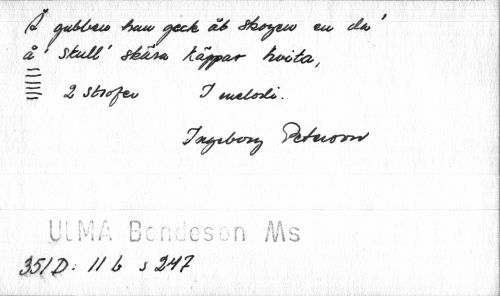 Å gubben han geck åt skogen en da'
å' skull' skära käppar hvita,
2 strofer I melodi.
Ingeborg Peterson
ULMA Bondeson Ms
351D: 11 b s 247